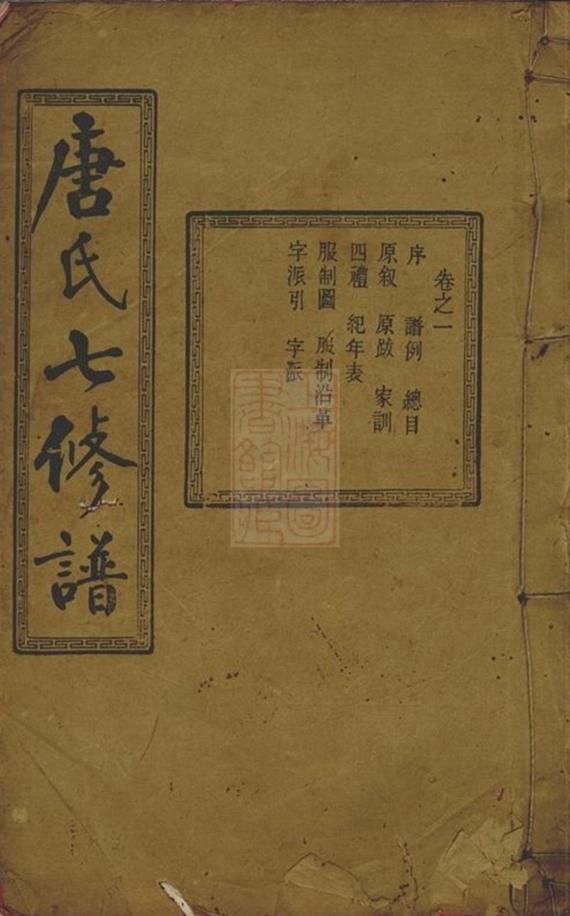 唐氏七修譜
卷之一
序 譜例 總目
原叙 原跋 家訓
四禮 紀年表
服制圖 服制沿革
字派引 字派
上海圖書館藏